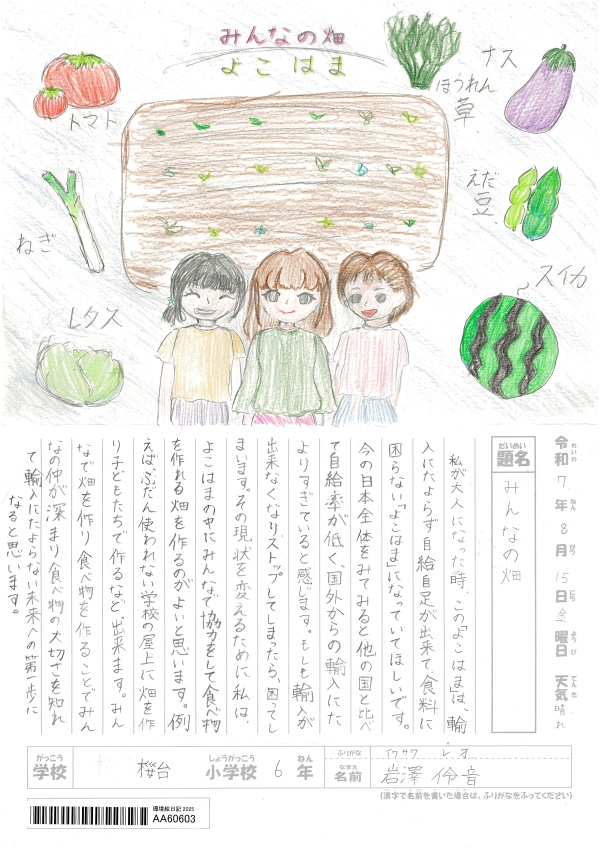 みんなの畑
よこはま
トマト
ねぎ
レタス
ほうれん草
ナス
えだ豆
スイカ
令和7年8月15日金曜日 天気晴れ
れいわ ねん がつ にち ようび てんき
だいめい
題名
みんなの畑
私が大人になった時、この「よこはま」は、輸
入にたよらず自給自足が出来て食料に
困らない「よこはま」になっていてほしいです。
今の日本全体をみてみると他の国と比べ
て自給率が低く、国外からの輸入にた
よりすぎていると感じます。もしも輸入が
出来なくなりストップしてしまったら、困ってし
まいます。その現状を変えるために私は、
よこはまの中にみんなで協力をして食べ物
を作れる畑を作るのがよいと思います。例
えば、ふだん使われない学校の屋上に畑を作
り子どもたちで作るなど出来ます。みん
なで畑を作り食べ物を作ることでみん
なの仲が深まり食べ物の大切さを知れ
て輸入にたよらない未来への第一歩に
なると思います。
がっこう しょうがっこう ねん
学校 桜台 小学校 6年
ふりがな イワサワ レオ
なまえ
名前 岩澤 伶音
(漢字で名前を書いた場合は、ふりがなをふってください)
環境絵日記 2025
AA60603